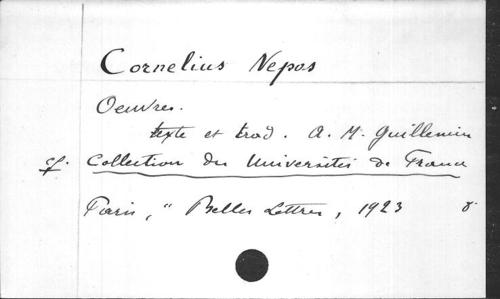 Cornelius Nepos
Oeuvres.
texte et trad. A. M. Guillemin
cf. Collection des Universités de France
Paris, "Belles Lettres, 1923 8